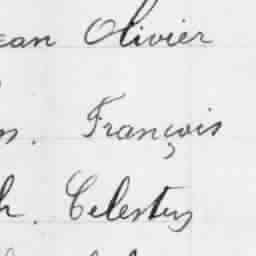 ean Olivier
n. François
h. Celestin